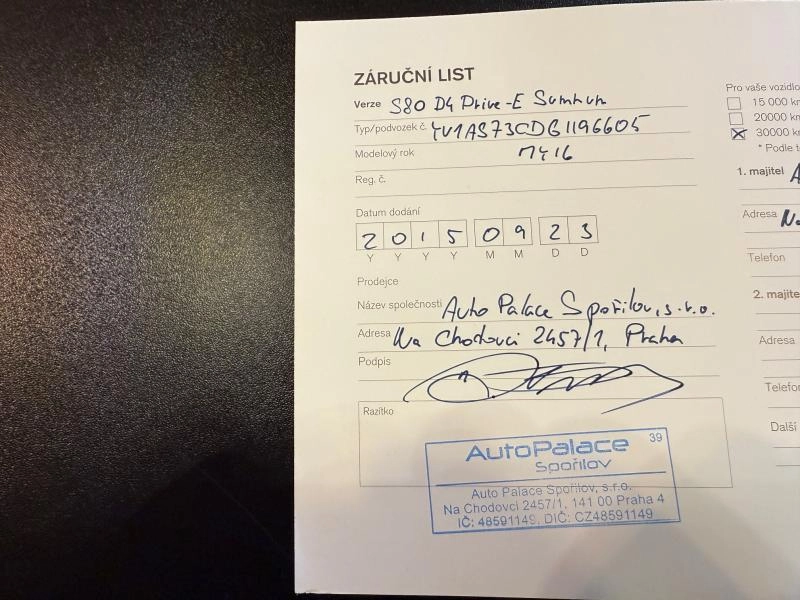 ZÁRUČNÍ LIST
Verze S80 D4 Drive-E Summum
Typ/podvozek č. YV1AS73CDG1196605
Modelový rok MY16
Reg. č.
Datum dodání
2 0 1 5 0 9 2 3
Y Y Y Y M M D D
Prodejce
Název společnosti Auto Palace Spořilov, s.r.o.
Adresa Na Chodovci 2457/1, Praha
Podpis
Razítko
AutoPalace 39
Spořilov
Auto Palace Spořilov, s.r.o.
Na Chodovci 2457/1, 141 00 Praha 4
IČ: 48591149, DIČ: CZ48591149
Pro vaše vozidlo
15 000 km
20000 km
30000 km
* Podle t
1. majitel A
Adresa Na
Telefon
2. majite
Adresa
Telefon
Další